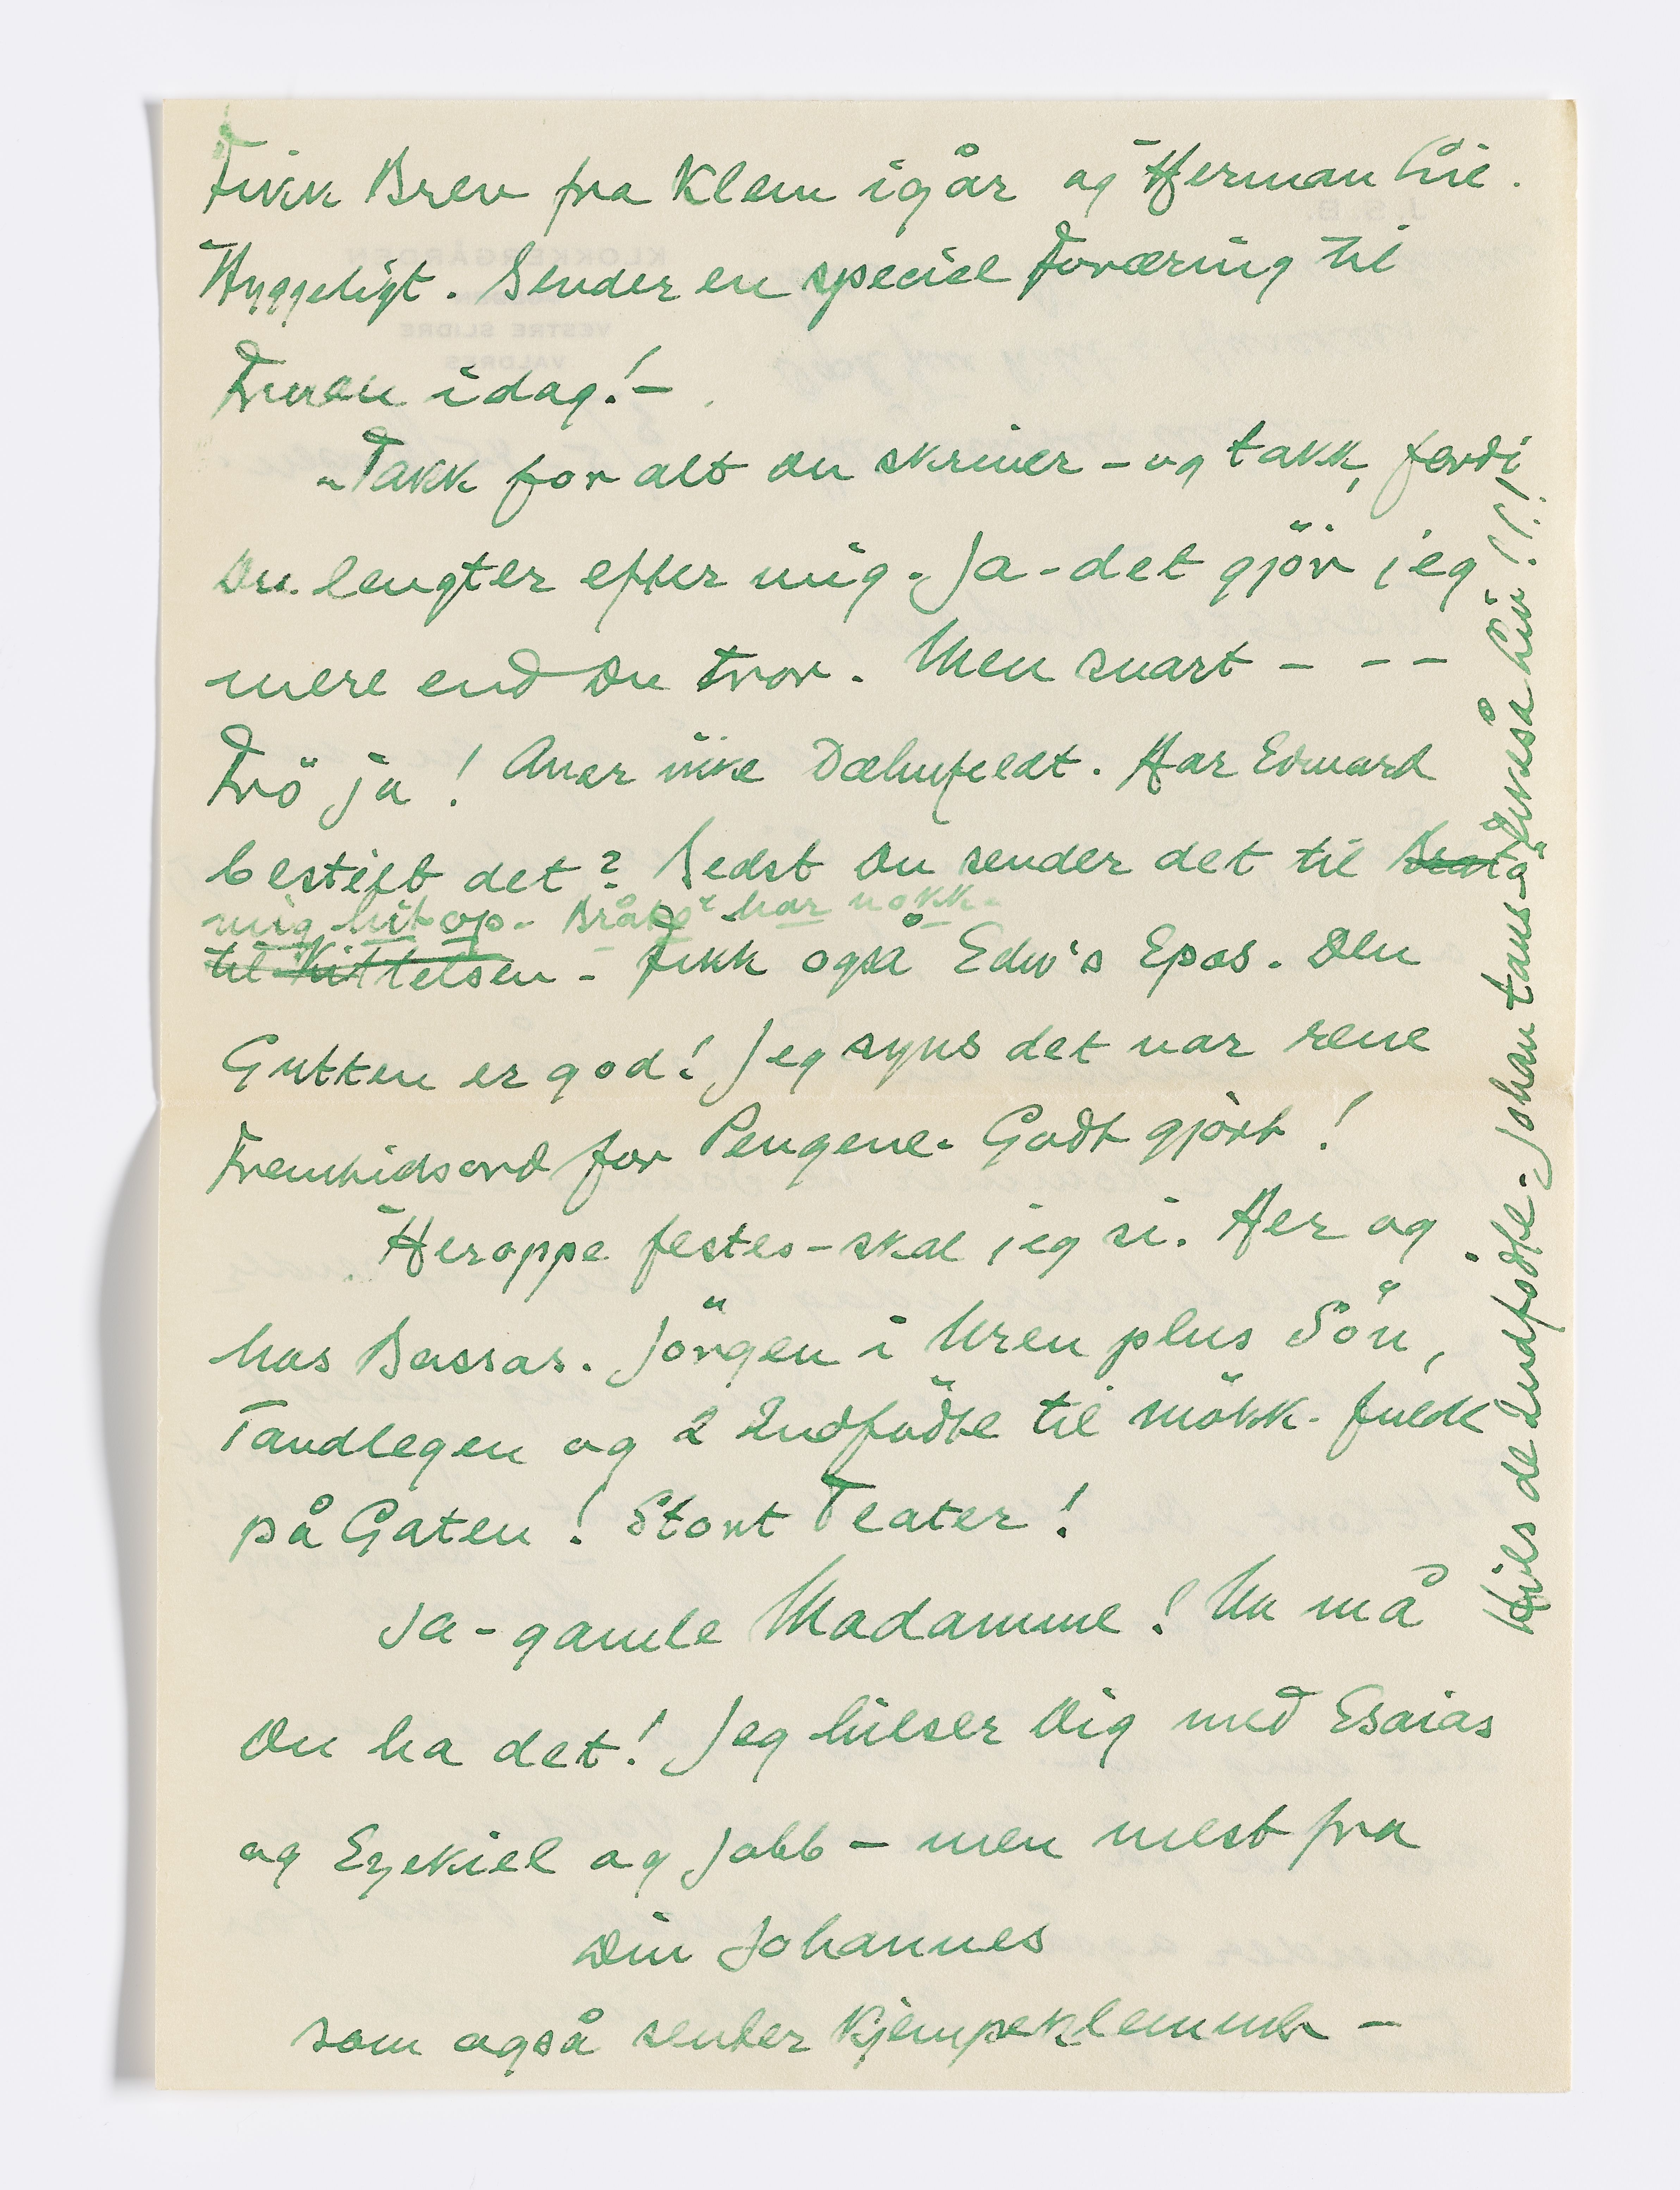 Fikk Brev fra Klem igår og Herman Lie.
Hyggeligt. Sender en speciel Foræring til
Fruen idag! —
Takk for alt Du skriver - og takk, fordi
Du lengter efter mig. Ja - det gjör jeg
mere end Du tror. Men snart - - -
Frö ja! Aner ikke Dæhnfeldt. Har Edvard
bestilt det? Sedst Du sender det til
mig hit op - Bråtö har nokk -
til Kittelsen - Fikk også Edv's Epos. Den
Gutten er god! Jeg syns det var rene
Fremtidsord for Pengene. Godt gjört!
Heroppe festes - skal jeg si. Her og
hos Bassas. Jörgen i Uren plus Sön,
Tandlegen og 2 Indfödte til mökk-fulde
på Gaten! Stort Teater!
Ja - gamle Madamme! Nu må
Du ha det! Jeg hilser Dig med Esaias
og Ezekiel og Jobb - men mest fra
Din Johannes
som også sender Kjempeklemmer -
Hils de Indfödte - Johan tans - å Jukså Liv!!!
J.S.B.
KLOKKERGÅRDEN
VESTRE SLIDRE
VALDRES